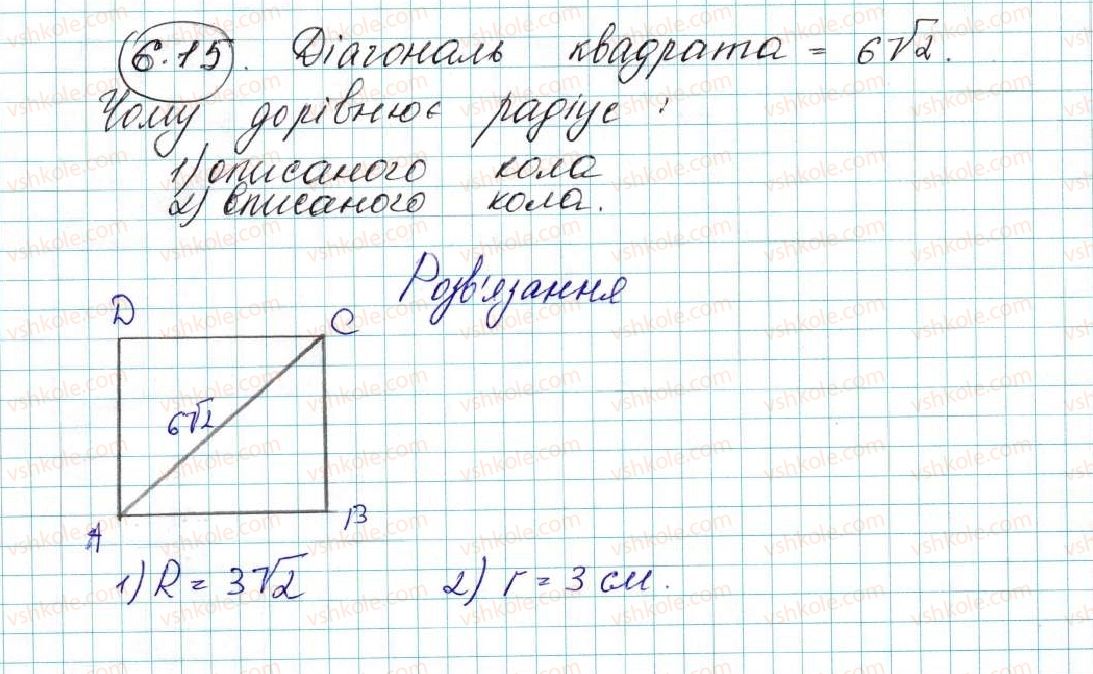 6.15. Діагональ квадрата = 6√2.
Чому дорівнює радіус:
1) описаного кола
2) вписаного кола.
Розв'язання
D
C
6√2
A
B
1) R = 3√2 2) r = 3 см.
vshkole.com